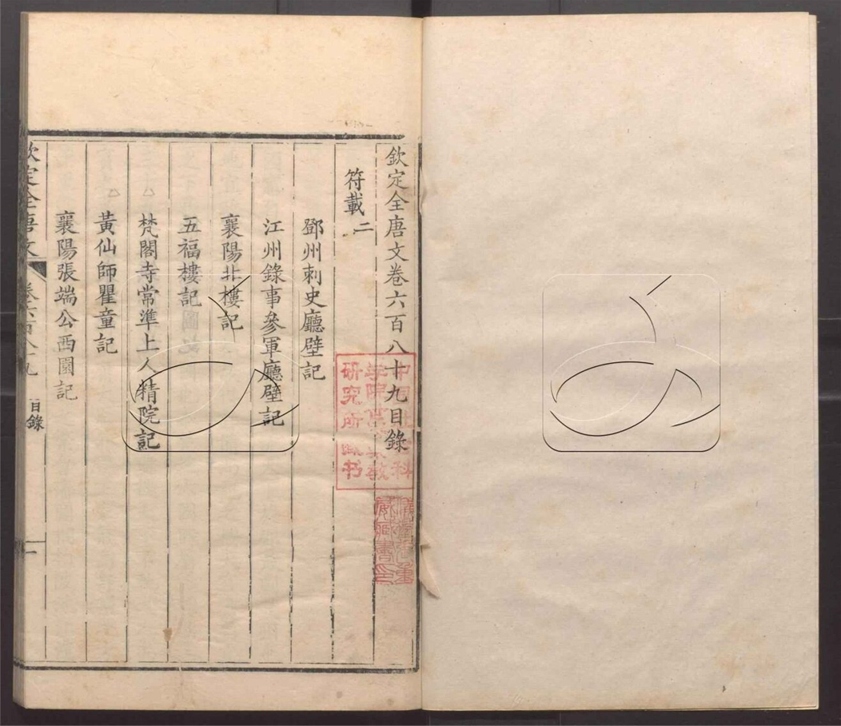 欽定全唐文卷六百八十九目錄
符載二
鄧州刺史廳壁記
江州錄事參軍廳壁記
襄陽北樓記
五福樓記
梵閣寺常準上人精院記
黃仙師瞿童記
襄陽張端公西園記
欽定全唐文 卷六百八十九 目錄 一